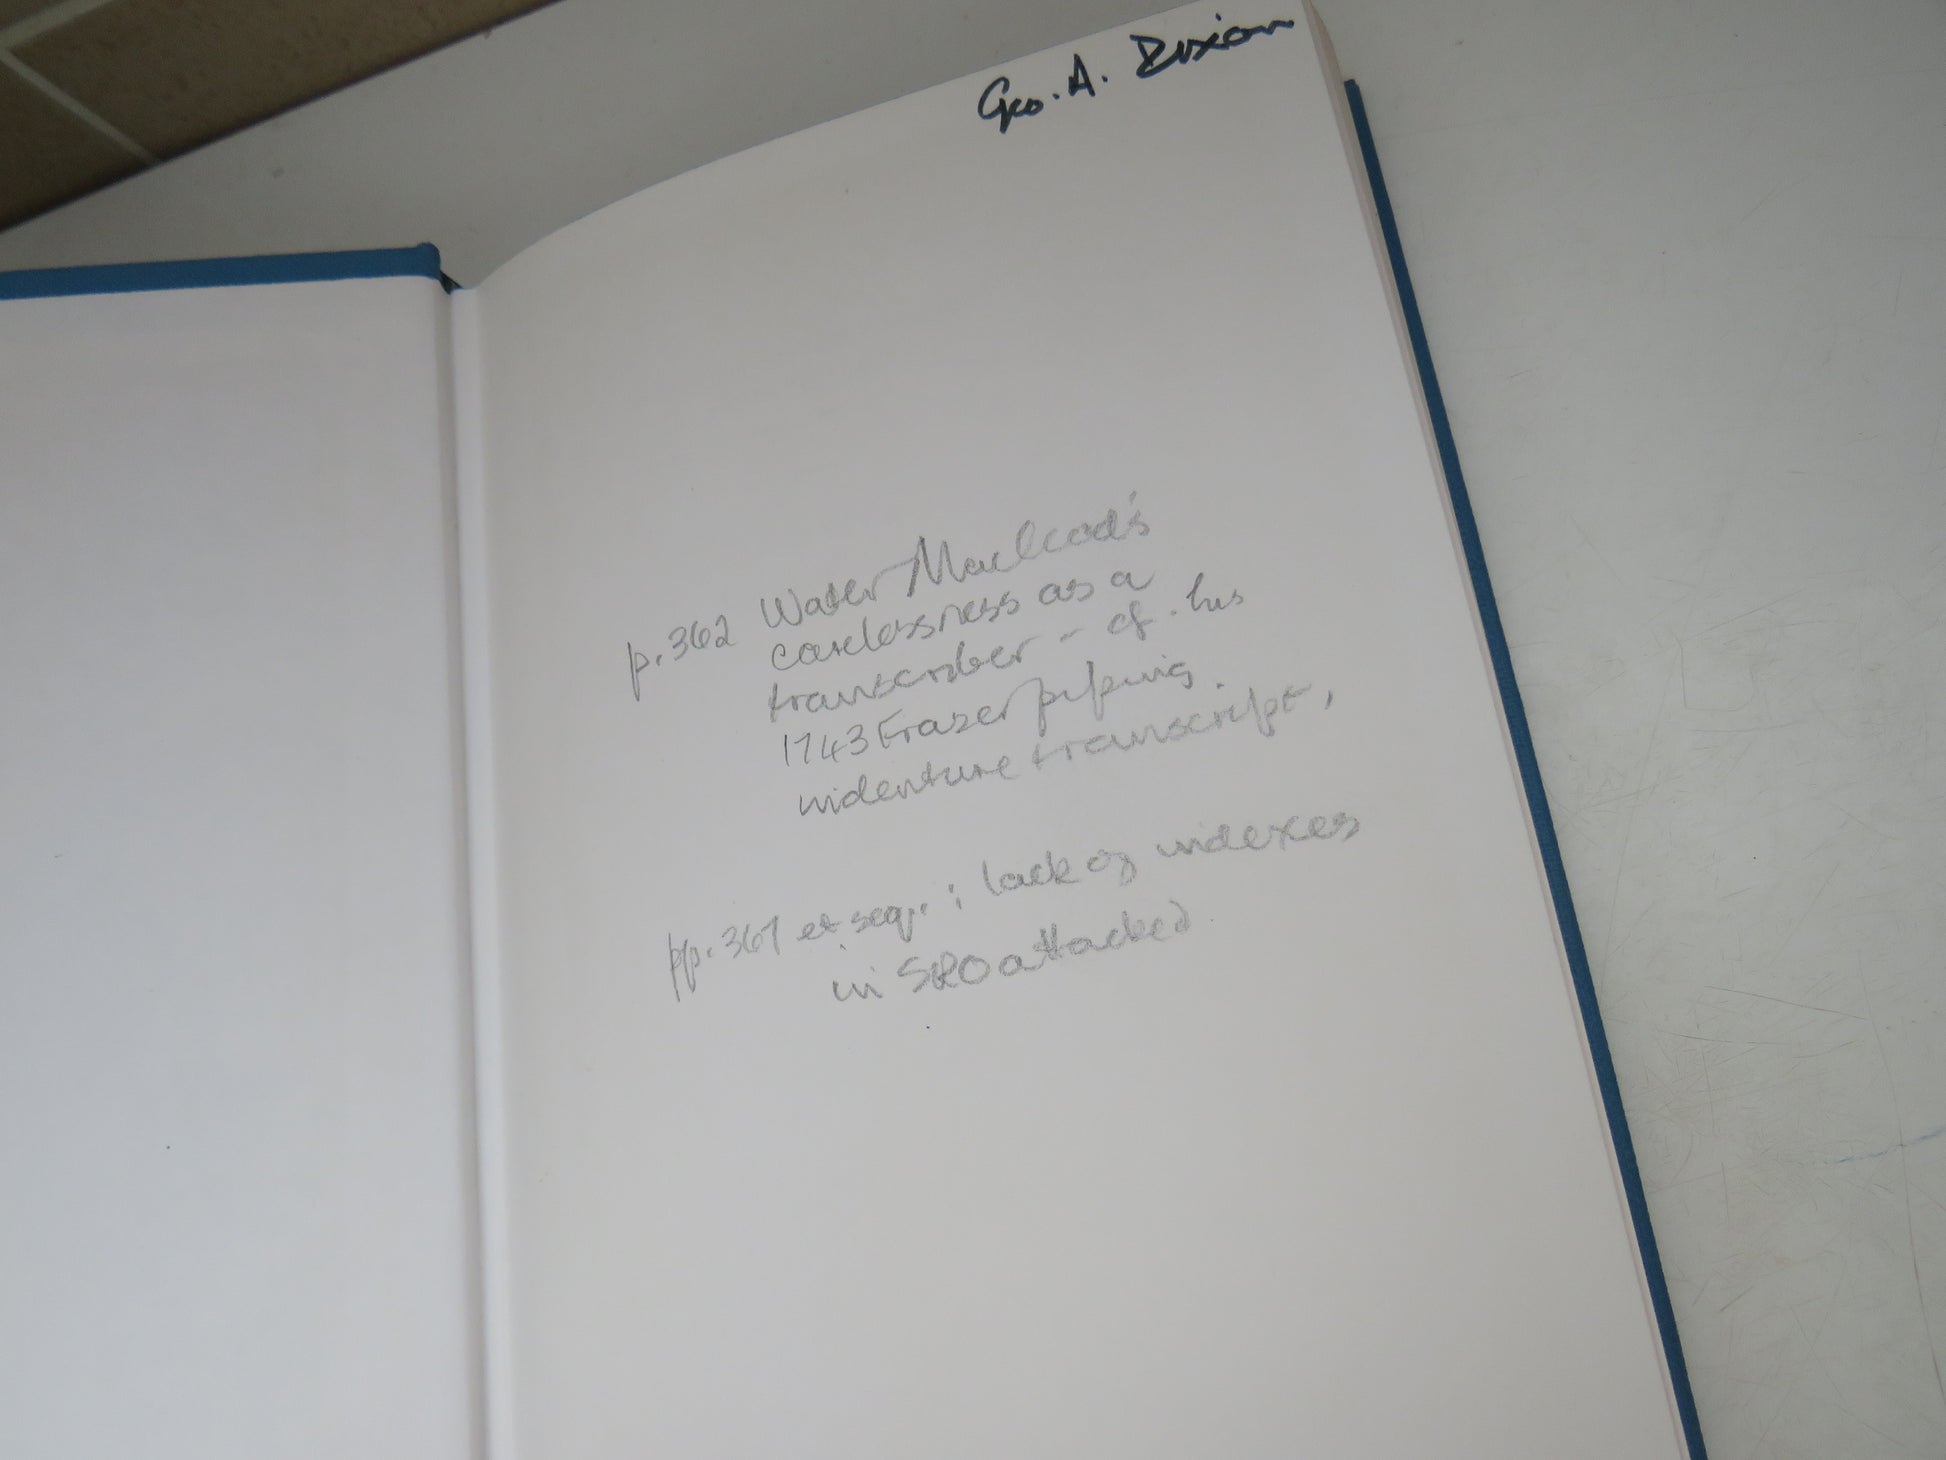 Geo. A. Dixon
p. 362 Walter Macleod's
carelessness as a
transcriber – cf. his
1743 Fraser piping
indenture transcript,
pp. 367 et seq. ; lack of indexes
in SRO attacked